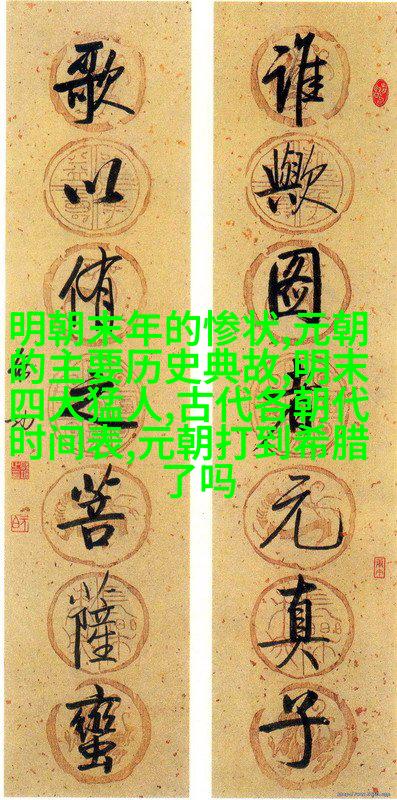 谁歟图元真子
歌以侑菩薩蠻
明朝末年的惨状,元朝
的主要历史典故,明末
四大猛人,古代各朝代
时间表,元朝打到希腊
了吗